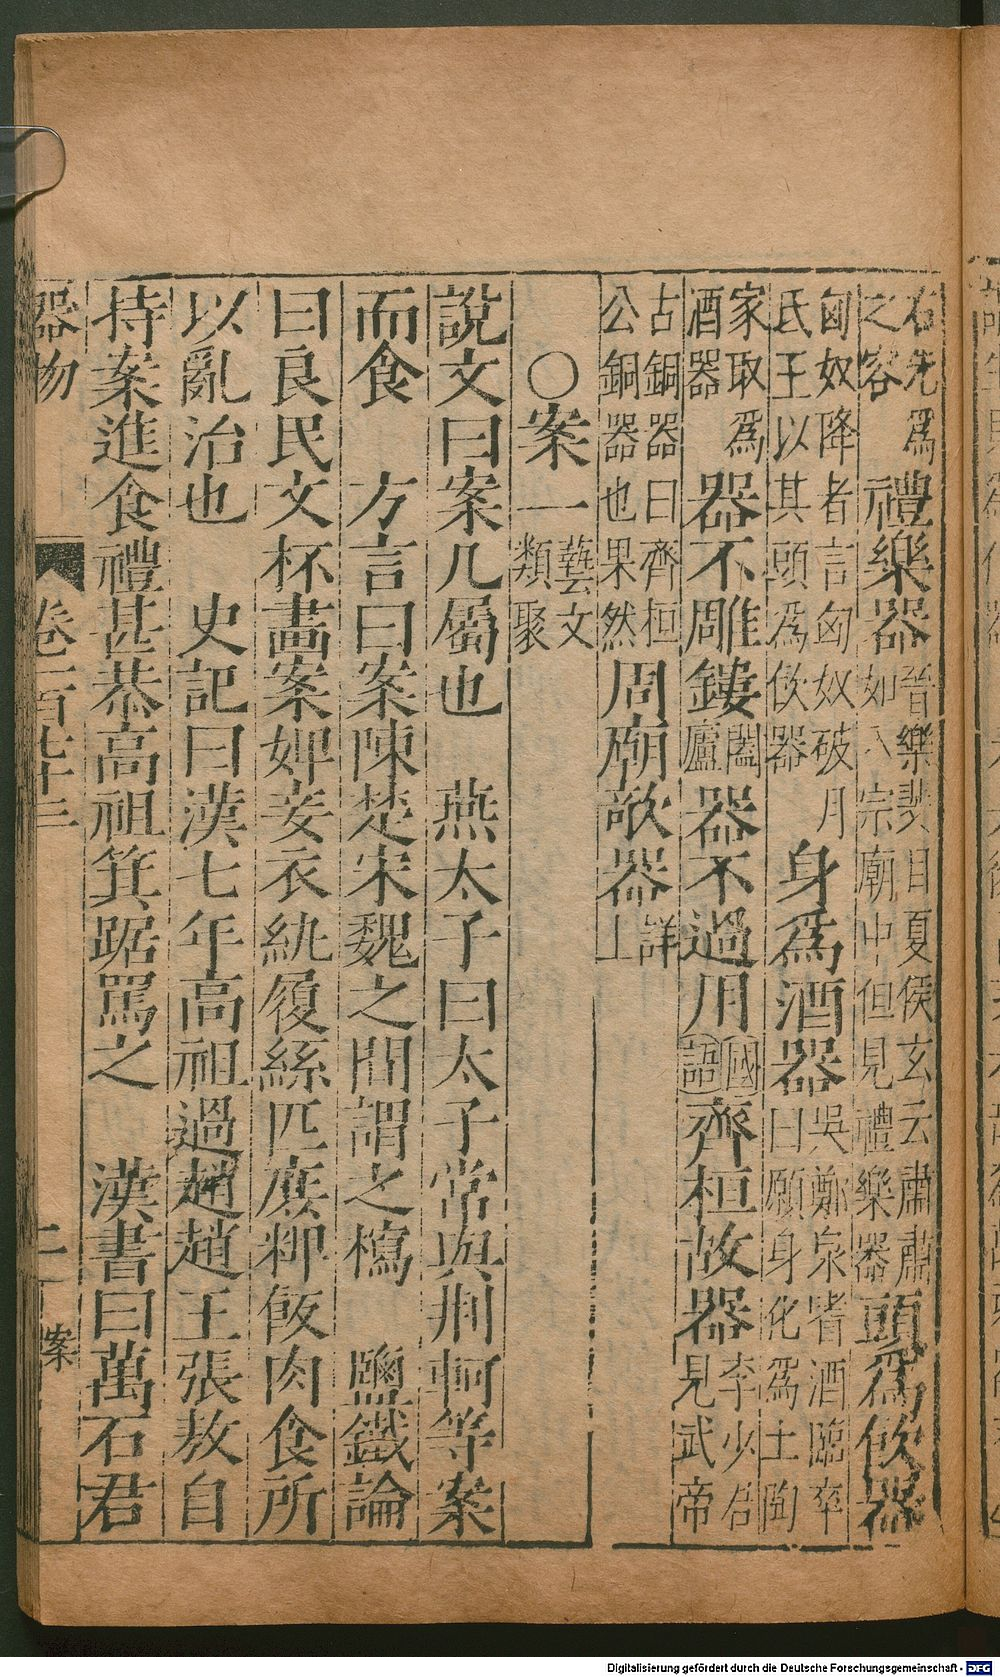 右先爲之客禮樂器晉樂裴目夏侯玄云肅肅如入宗廟中但見禮樂器頭爲飲器
匈奴降者言匈奴破月氏王以其頭爲飲器身爲酒器吳鄭泉嗜酒臨卒曰願身化爲土陶
家取爲酒器器不雕鏤闔廬器不過用國語齊桓故器李少君見武帝
古銅器曰齊桓公銅器也果然周廟欹器詳上
○案一藝文類聚
說文曰案几屬也 燕太子曰太子常與荆軻等案
而食 方言曰案陳楚宋魏之間謂之㯓 鹽鐵論
曰良民文杯畫案婢妾衣紈履絲匹庶粺飯肉食所
以亂治也 史記曰漢七年高祖過趙趙王張敖自
持案進食禮甚恭高祖箕踞罵之 漢書曰萬石君
器物 卷二百七十三 二 案
Digitalisierung gefördert durch die Deutsche Forschungsgemeinschaft - DFG